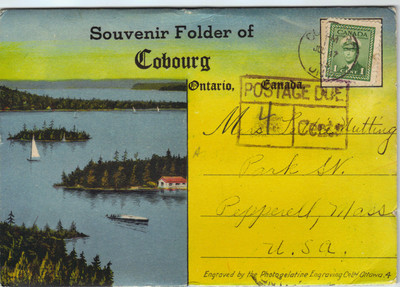 Souvenir Folder of
Cobourg
Ontario, Canada,
POSTAGE DUE
4 Cents
1 1
Nutting
Park St.
Pepperell, Mass
U.S.A.
Engraved by the Photogelatine Engraving Co. Ltd. Ottawa. 4